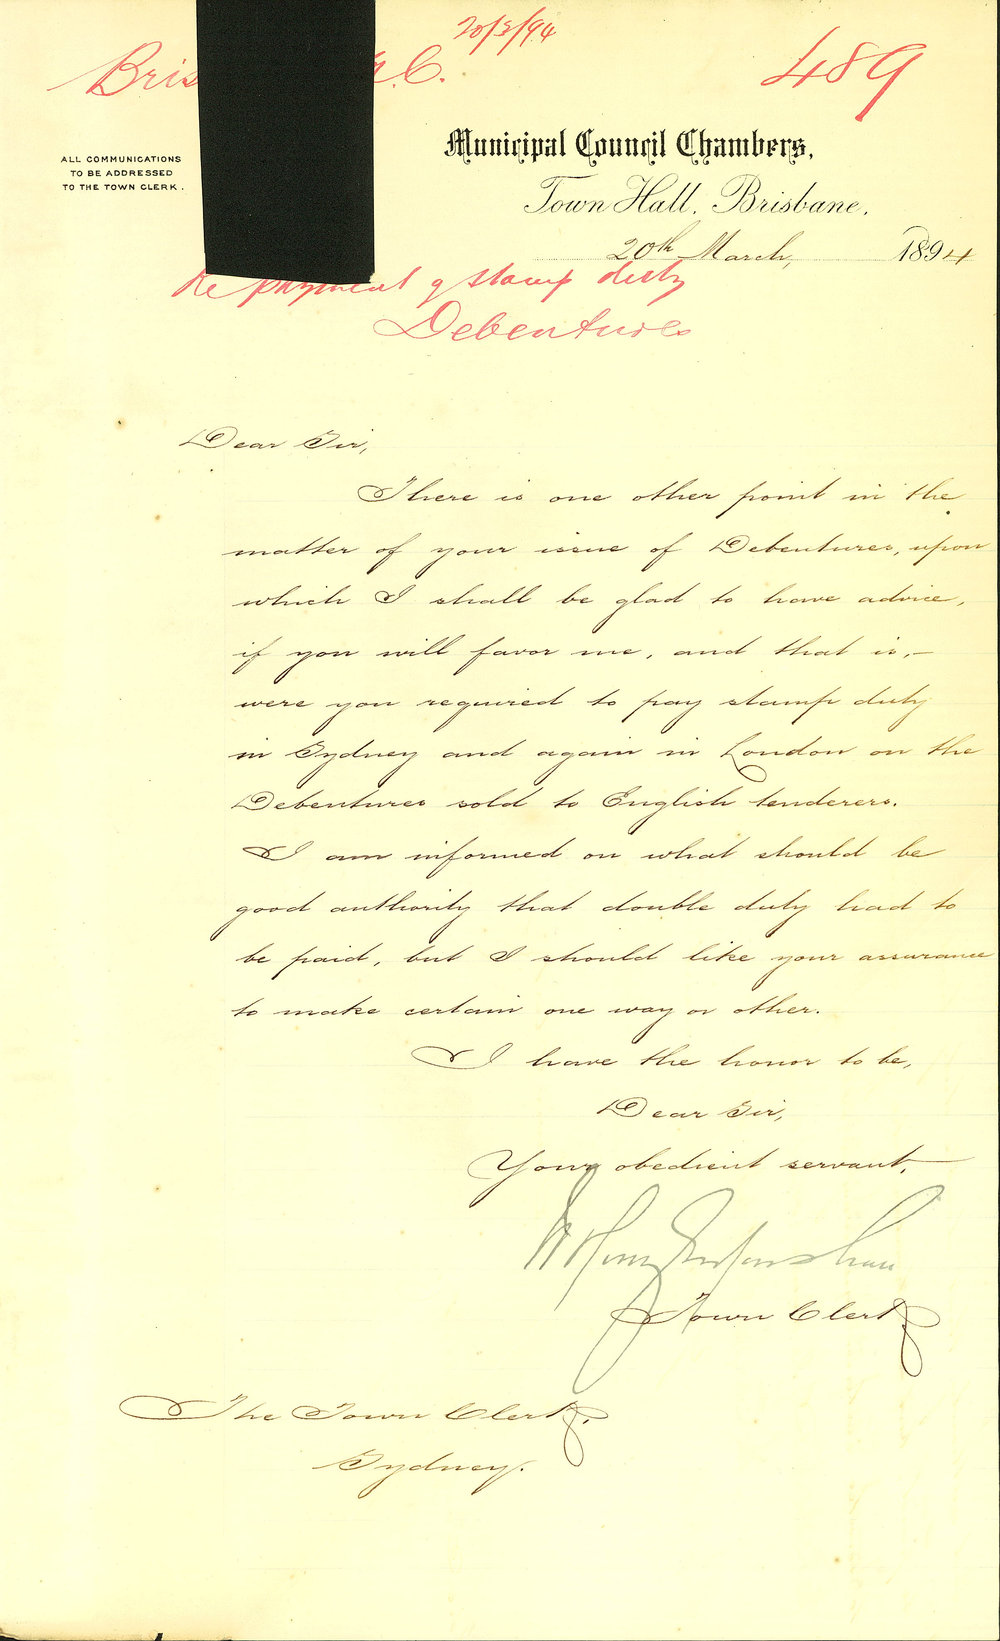 20/3/94
489
ALL COMMUNICATIONS
TO BE ADDRESSED
TO THE TOWN CLERK.
Municipal Council Chambers,
Town Hall, Brisbane,
20th March, 1894
Re payment of stamp duty
Debentures
Dear Sir,
There is one other point in the
matter of your issue of Debentures, upon
which I shall be glad to have advice,
if you will favor me, and that is,—
were you required to pay stamp duty
in Sydney and again in London on the
Debentures sold to English tenderers.
I am informed on what should be
good authority that double duty had to
be paid, but I should like your assurance
to make certain one way or other.
I have the honor to be,
Dear Sir,
Your obedient servant,
Town Clerk
The Town Clerk,
Sydney.